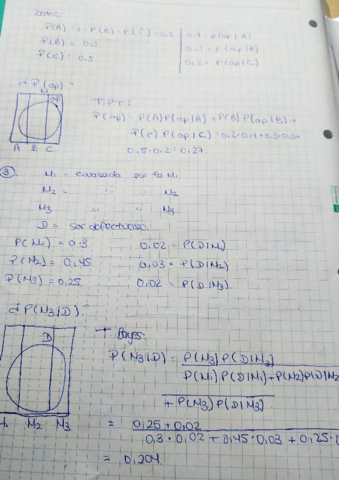 Datos:
P(A) = 1 - P(B) - P(C) = 0,2 0,4 = P(ap|A)
P(B) = 0,3 0,3 = P(ap|B)
P(C) = 0,5 0,2 = P(ap|C)
¿P(ap)?
ap
T.P.T:
P(ap) = P(A)P(ap|A) + P(B)P(ap|B) +
P(C)P(ap|C) = 0,2·0,4+0,3·0,3+
0,5·0,2 = 0,27.
A B C
3 M1 = por la M1
M2 = " " " M2
M3 " " " M3
D = ser defectuoso
P(M1) = 0,3 0,02 = P(D|M1)
P(M2) = 0,45 0,03 = P(D|M2)
P(M3) = 0,25 0,02 = P(D|M3)
¿P(M3|D)?
D
T Bayes
P(M3|D) = P(M3)P(D|M3)
P(M1)P(D|M1)+P(M2)P(D|M2)
+ P(M3)P(D|M3)
= 0,25 + 0,02
0,3·0,02 + 0,45·0,03 + 0,25·
= 0,204
M1 M2 M3